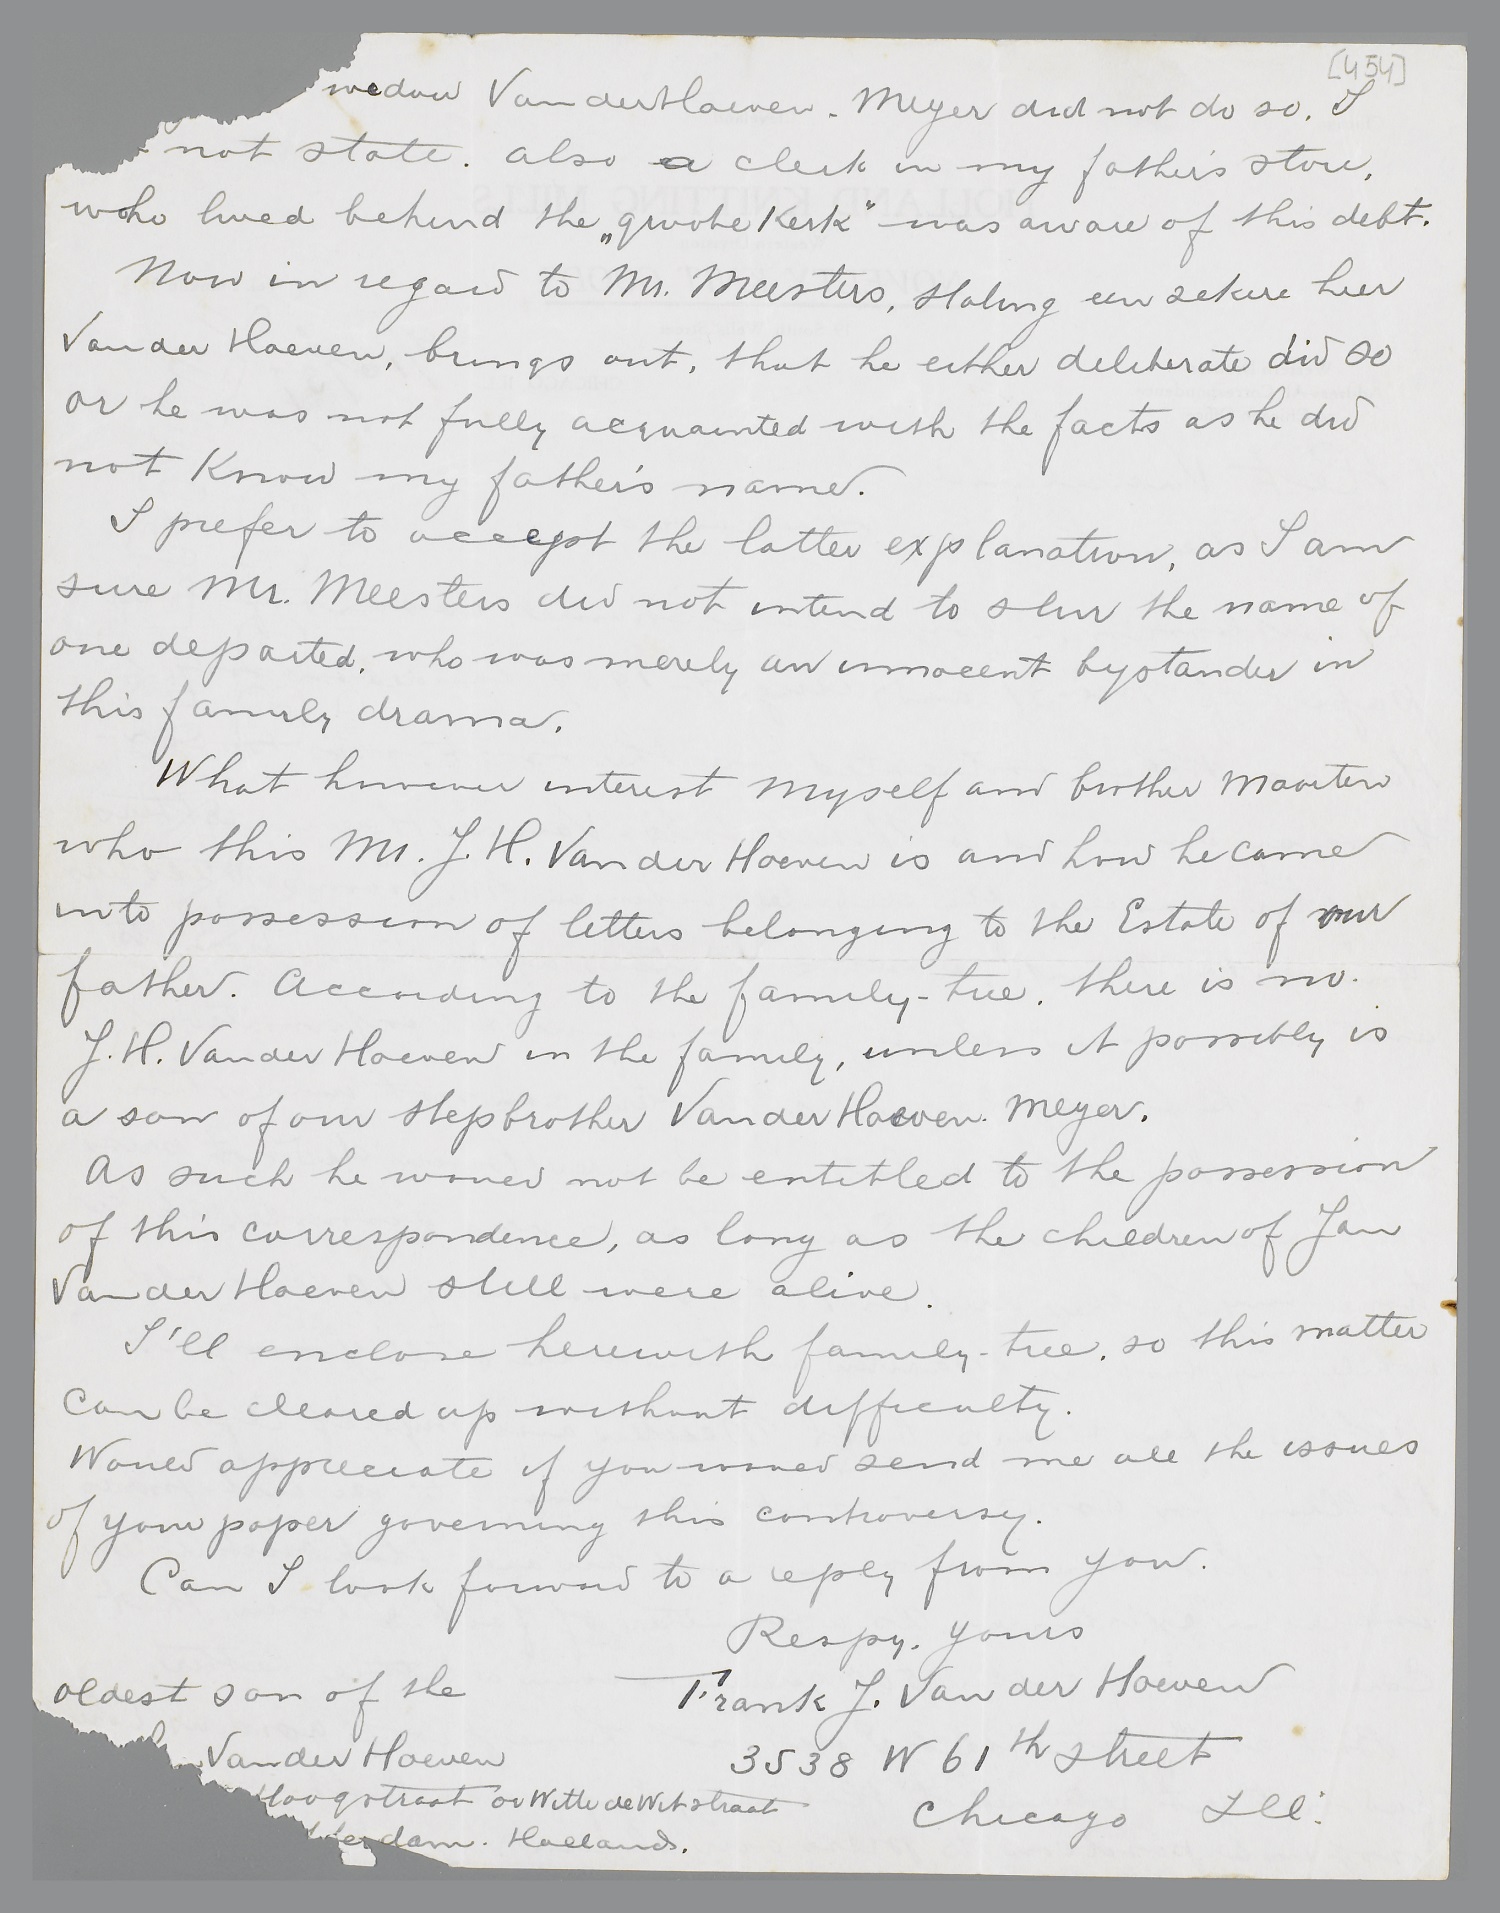 [454]
wedow VanderHoeven. Meyer did not do so, I
not state. also a clerk in my father's store,
who lived behind the „groote Kerk" was aware of this debt.
Now in regard to Mr. Meesters, stating een sekere heer
Vander Hoeven, brings out, that he either deliberate did so
or he was not fully acquainted with the facts as he did
not Know my father's name.
I prefer to accept the latter explanation, as I am
sure Mr. Meesters did not intend to slur the name of
one departed, who was merely an innocent bystander in
this family drama.
What however interest myself and brother Maarten
who this Mr. J. H. Vander Hoeven is and how he came
into possession of letters belonging to the Estate of our
father. According to the family-tree, there is no.
J. H. Vander Hoeven in the family, unless it possibly is
a son of our stepbrother VanderHoeven. Meyer.
As such he woued not be entitled to the possession
of this correspondence, as long as the children of Jan
Vander Hoeven still were alive.
I'll enclose herewith family-tree, so this matter
can be cleared up without difficulty.
Woued appreciate if you woued send me all the issues
of your paper governing this controversy.
Can I look forward to a reply from you.
Respy. yours
Frank J. Van der Hoeven
3538 W 61th street
Chicago Ill.
oldest son of the
Vander Hoeven
Hoogstraat or Witte de Wit straat
terdam. Holland.